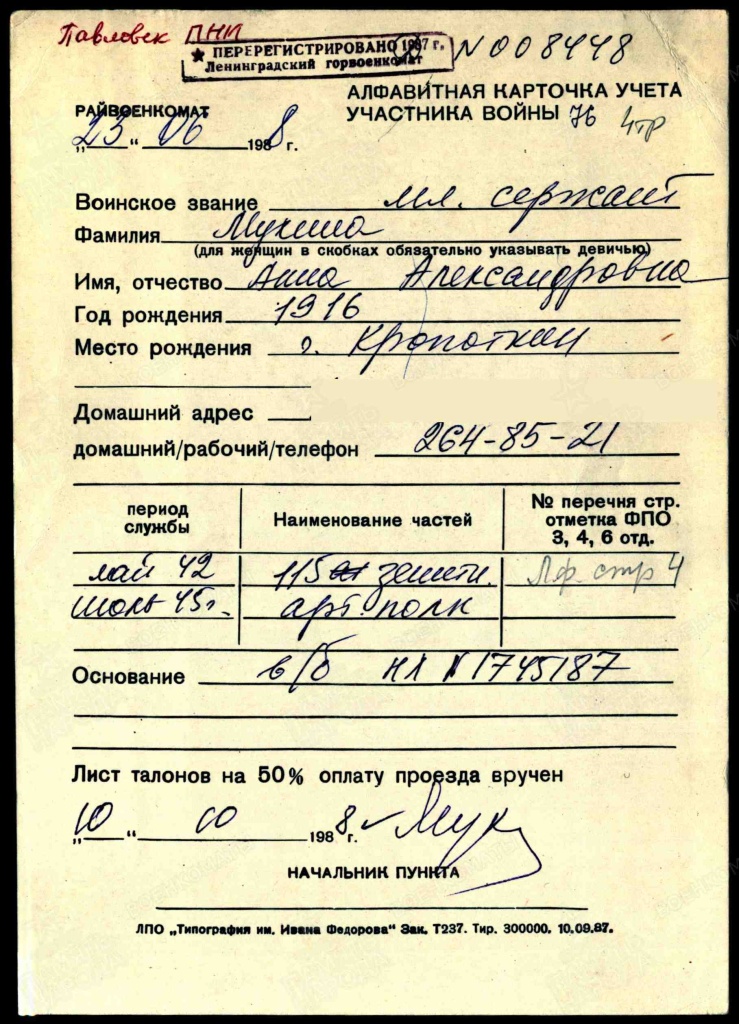 Павловск ПНИ
★ ПЕРЕРЕГИСТРИРОВАНО 1987 г.
Ленинградский горвоенкомат
N 008448
АЛФАВИТНАЯ КАРТОЧКА УЧЕТА
УЧАСТНИКА ВОЙНЫ 76 4тр
РАЙВОЕНКОМАТ
„23“ 06 1988 г.
Воинское звание мл. сержант
Фамилия Мухина
(для женщин в скобках обязательно указывать девичью)
Имя, отчество Анна Александровна
Год рождения 1916
Место рождения г. Кропоткин
Домашний адрес
домашний/рабочий/телефон 264-85-21
период службы
Наименование частей
№ перечня стр. отметка ФПО 3, 4, 6 отд.
май 42 115 зенитн. Лф стр 4
июль 45г. арт. полк
Основание в/б НЛ N 1745187
Лист талонов на 50% оплату проезда вручен
„10“ 10 1988 г. Мух
НАЧАЛЬНИК ПУНКТА
ЛПО „Типография им. Ивана Федорова“ Зак. Т237. Тир. 300000. 10.09.87.